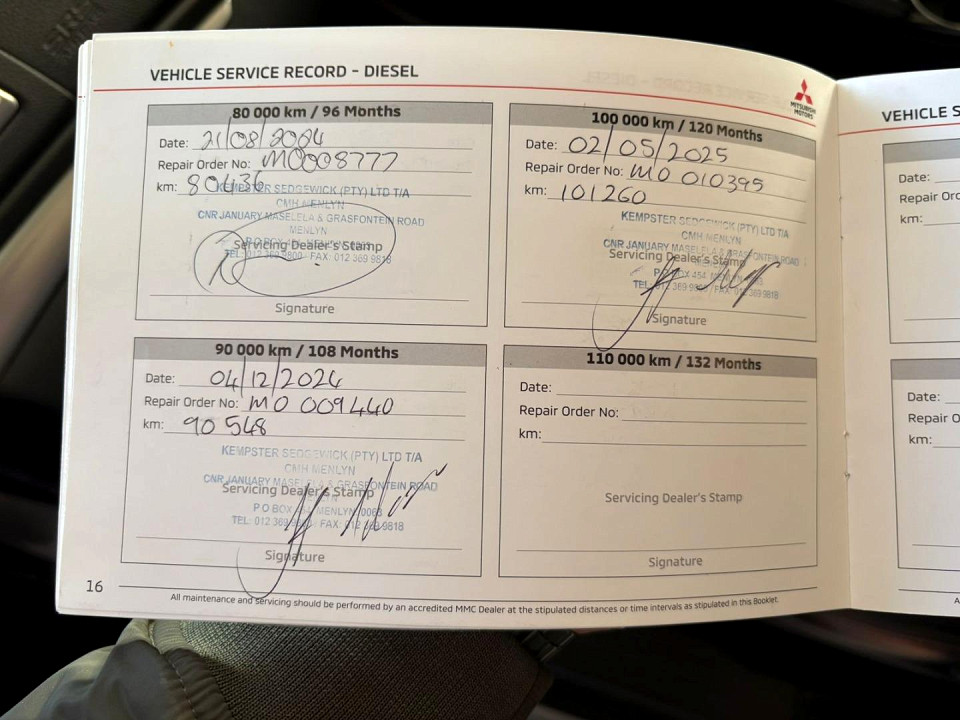 VEHICLE SERVICE RECORD - DIESEL
MITSUBISHI
MOTORS
80 000 km / 96 Months
Date: 21/08/2024
Repair Order No: M0008777
km: 80436
KEMPSTER SEDGEWICK (PTY) LTD T/A
CMH MENLYN
CNR JANUARY MASELELA & GRASFONTEIN ROAD
MENLYN
Servicing Dealer's Stamp
TEL: 012 369 9800 FAX: 012 369 9818
Signature
90 000 km / 108 Months
Date: 04/12/2024
Repair Order No: M0 009440
km: 90 548
KEMPSTER SEDGEWICK (PTY) LTD T/A
CMH MENLYN
CNR JANUARY MASELELA & GRASFONTEIN ROAD
Servicing Dealer's Stamp
P O BOX 454 MENLYN 0063
TEL: 012 369 FAX: 012 369 9818
Signature
100 000 km / 120 Months
Date: 02/05/2025
Repair Order No: M0 010395
km: 101260
KEMPSTER SEDGEWICK (PTY) LTD T/A
CMH MENLYN
CNR JANUARY MASELELA & GRASFONTEIN ROAD
Servicing Dealer's Stamp
P O BOX 454 MENLYN 0063
TEL: 012 369 FAX: 012 369 9818
Signature
110 000 km / 132 Months
Date:
Repair Order No:
km:
Servicing Dealer's Stamp
Signature
16
All maintenance and servicing should be performed by an accredited MMC Dealer at the stipulated distances or time intervals as stipulated in this Booklet.
VEHICLE S
Date:
Repair Ord
km:
Date:
Repair O
km: